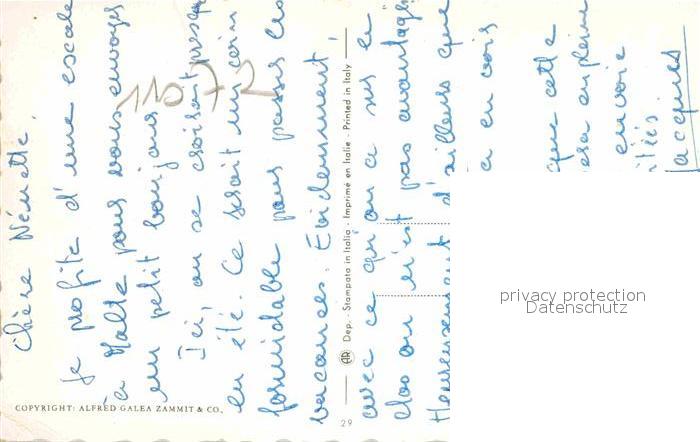 Chère Nénette,
Je profite d'une escale
à Malte pour vous envoyer
un petit bonjour
Ici, on se croirait presque
en été. Ce serait un coin
formidable pour passer les
vacances. Evidemment,
avec ce qu'on a sur le
dos on n'est pas avantagé
Heureusement d'ailleurs que
a en vois
que cette
en pleine
envoie
itiés.
Jacques
11072
Dep. - Stampata in Italia - Imprimé en Italie - Printed in Italy
29
COPYRIGHT: ALFRED GALEA ZAMMIT & CO.,
privacy protection
Datenschutz